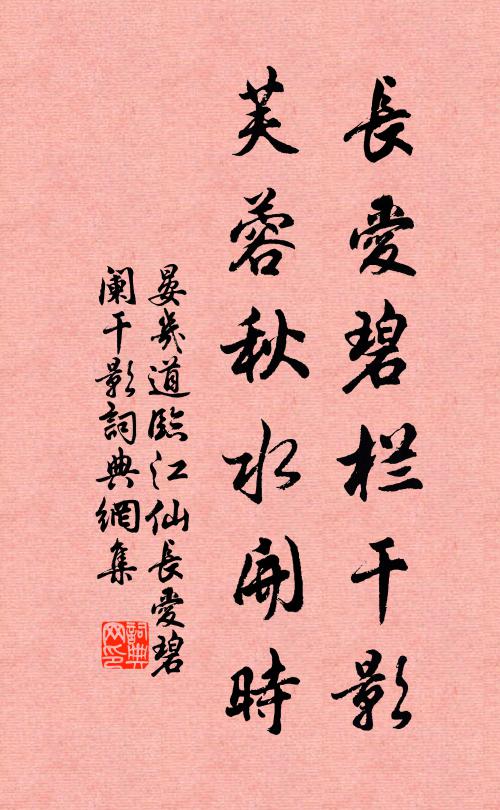 長愛碧栏干影
芙蓉秋水開時
晏幾道臨江仙長愛碧
阑干影詞典網集
詞典网印